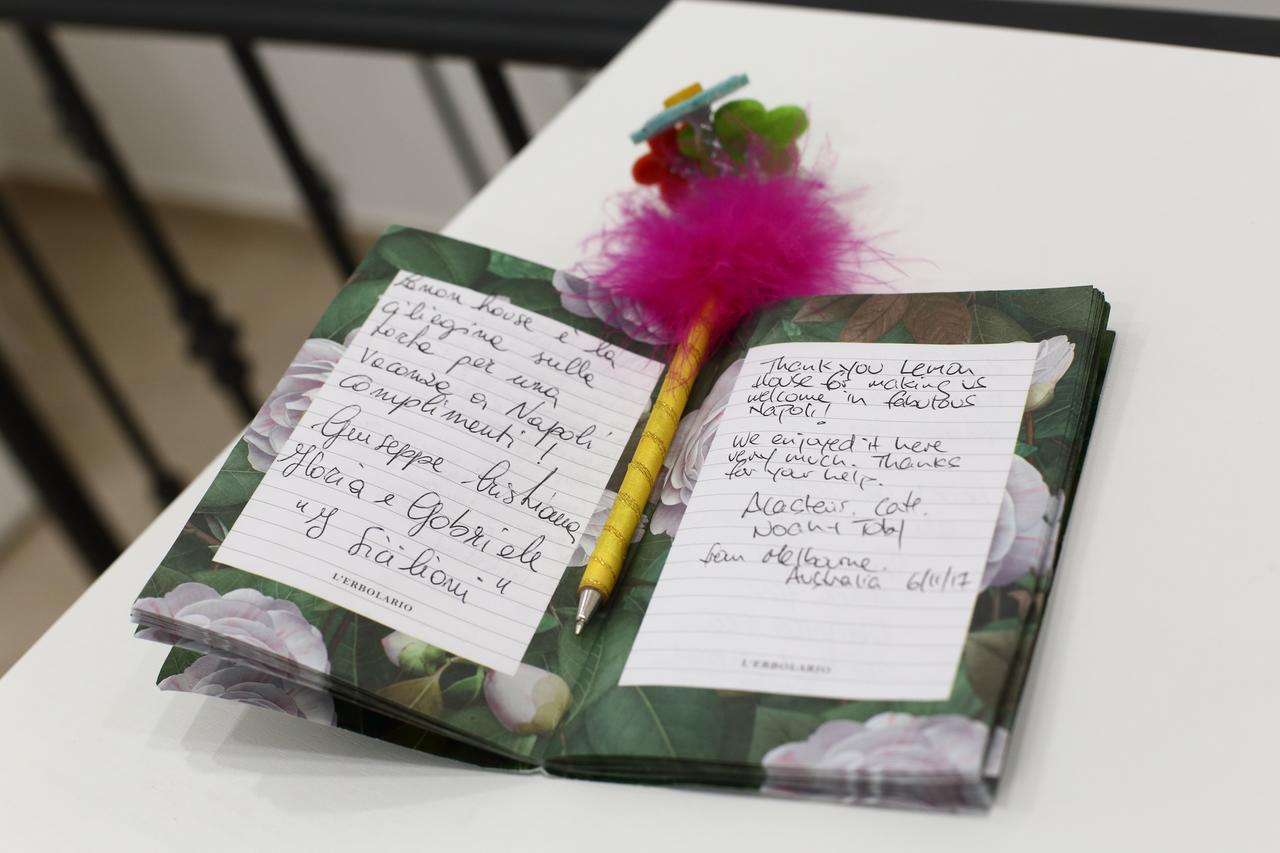 Lemon house è la
ciliegina sulla
torta per una
vacanza a Napoli
complimenti!
Giuseppe Cristiana
Gloria e Gabriele
"I Siciliani"
L'ERBOLARIO
Thank you Lemon
House for making us
welcome in fabulous
Napoli!
We enjoyed it here
very much. Thanks
for your help.
Alasteir, Cate,
Noah + Toby
from Melbourne.
Australia 6/11/17
L'ERBOLARIO